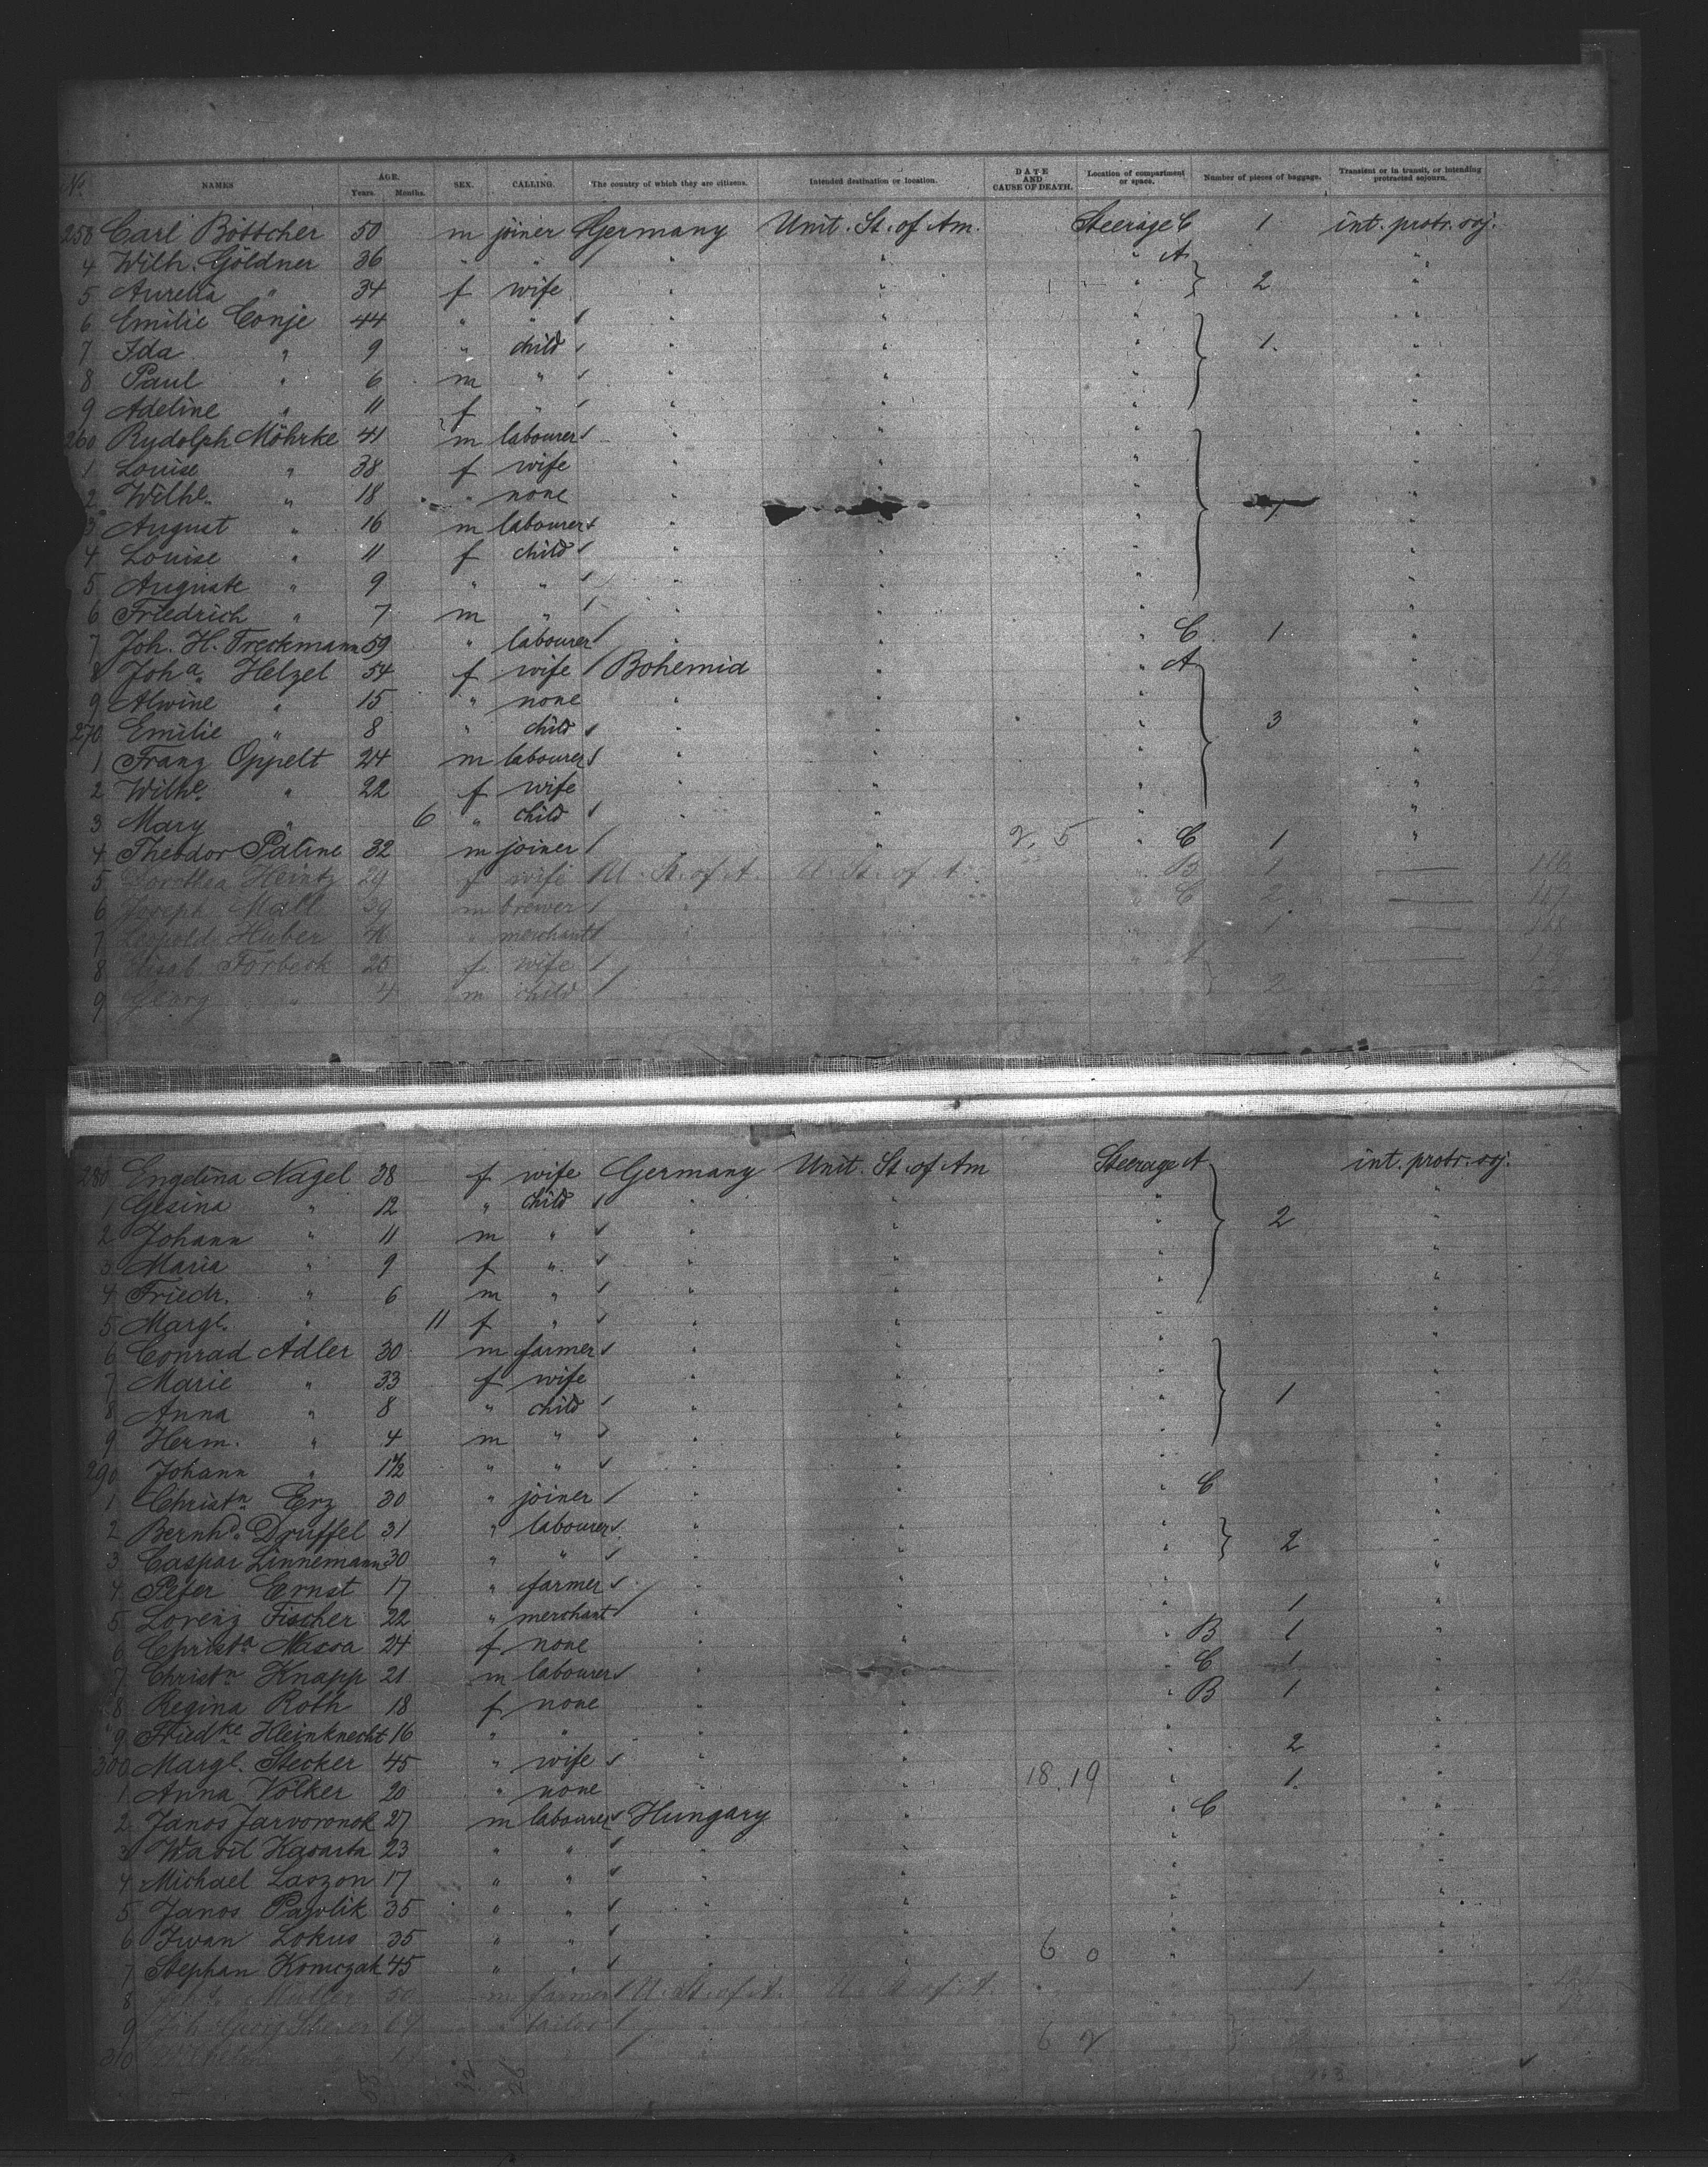 No. NAMES AGE. Years. Months. SEX. CALLING. The country of which they are citizens. Intended destination or location. DATE AND CAUSE OF DEATH. Location of compartment or space. Number of pieces of baggage. Transient or in transit, or intending protracted sojourn.
258 Carl Böttcher 50 m joiner Germany Unit. St. of Am. Steerage C 1 int. protr. soj.
4 Wilh. Göldner 36 " " " " " A "
5 Aurelia " 34 f wife " " " 2 "
6 Emilie Conje 44 " " " " " "
7 Ida " 9 " child " " " 1 "
8 Paul " 6 m " " " " "
9 Adeline " 11 f " " " " "
260 Rudolph Möhrke 41 m labourer " " " "
1 Louise " 38 f wife " " " "
2 Wilhe. " 18 " none " " " 1 "
3 August " 16 m labourer " " " "
4 Louise " 11 f child " " " "
5 Auguste " 9 " " " " " "
6 Friedrich " 7 m " " " " "
7 Joh. H. Treckmann 59 " labourer " " " C 1 "
8 Joha. Helzel 54 f wife Bohemia " " A "
9 Alwine " 15 " none " " " "
270 Emilie " 8 " child " " " 3 "
1 Franz Oppelt 24 m labourer " " " "
2 Wilhe. " 22 f wife " " " "
3 Mary " 6 " child " " " "
4 Theodor Patine 32 m joiner " " 2 5 " C 1 "
5 Dorothea Heintz 29 f wife U. St. of A. U. St. of A. " B 1 — 116
6 Joseph Mall 39 m brewer " " " C 2 — 117
7 Leopold Huber " merchant " " " 1 — 118
8 Elisab. Forbeck 25 f wife " " " A —
9 Georg " 4 m child " " 2 —
280 Engelina Nagel 38 f wife Germany Unit. St. of Am Steerage A int. protr. soj.
1 Gesina " 12 " child " " " "
2 Johann " 11 m " " " " 2 "
3 Maria " 9 f " " " " "
4 Friedr. " 6 m " " " " "
5 Margl. " 11 f " " " " "
6 Conrad Adler 30 m farmer " " " "
7 Marie " 33 f wife " " " 1 "
8 Anna " 8 " child " " " "
9 Herm. " 4 m " " " " "
290 Johann " 1 1/2 " " " " " "
1 Christn. Erz 30 " joiner " " " C "
2 Bernhd. Druffel 31 " labourer " " " 2 "
3 Caspar Linnemann 30 " " " " " "
4 Peter Ernst 17 " farmer " " " 1 "
5 Lorenz Fischer 22 " merchant " " " 1 "
6 Christa 24 f none " " " B 1 "
7 Christn. Knapp 21 m labourer " " " C 1 "
8 Regina Roth 18 f none " " " B 1 "
9 Friedke. Kleinknecht 16 " " " " " 2 "
300 Margl. Stecker 45 " wife " " " 1 "
1 Anna Völker 20 " none " " 18.19 " "
2 Janos Jarvoronok 27 m labourer Hungary " " C "
3 Wasil Kasarta 23 " " " " " "
4 Michael Laszon 17 " " " " " "
5 Janos Pawlik 35 " " " " " "
6 Iwan Lokus 35 " " " " " "
7 Stephan Komczak 45 " " " " 6 0 " "
8 Müller 50 m farmer U. St. of A. U. St. of A. 1
9 Joh. Georg Scherer 64 " tailor " "
310 " " " 6 2